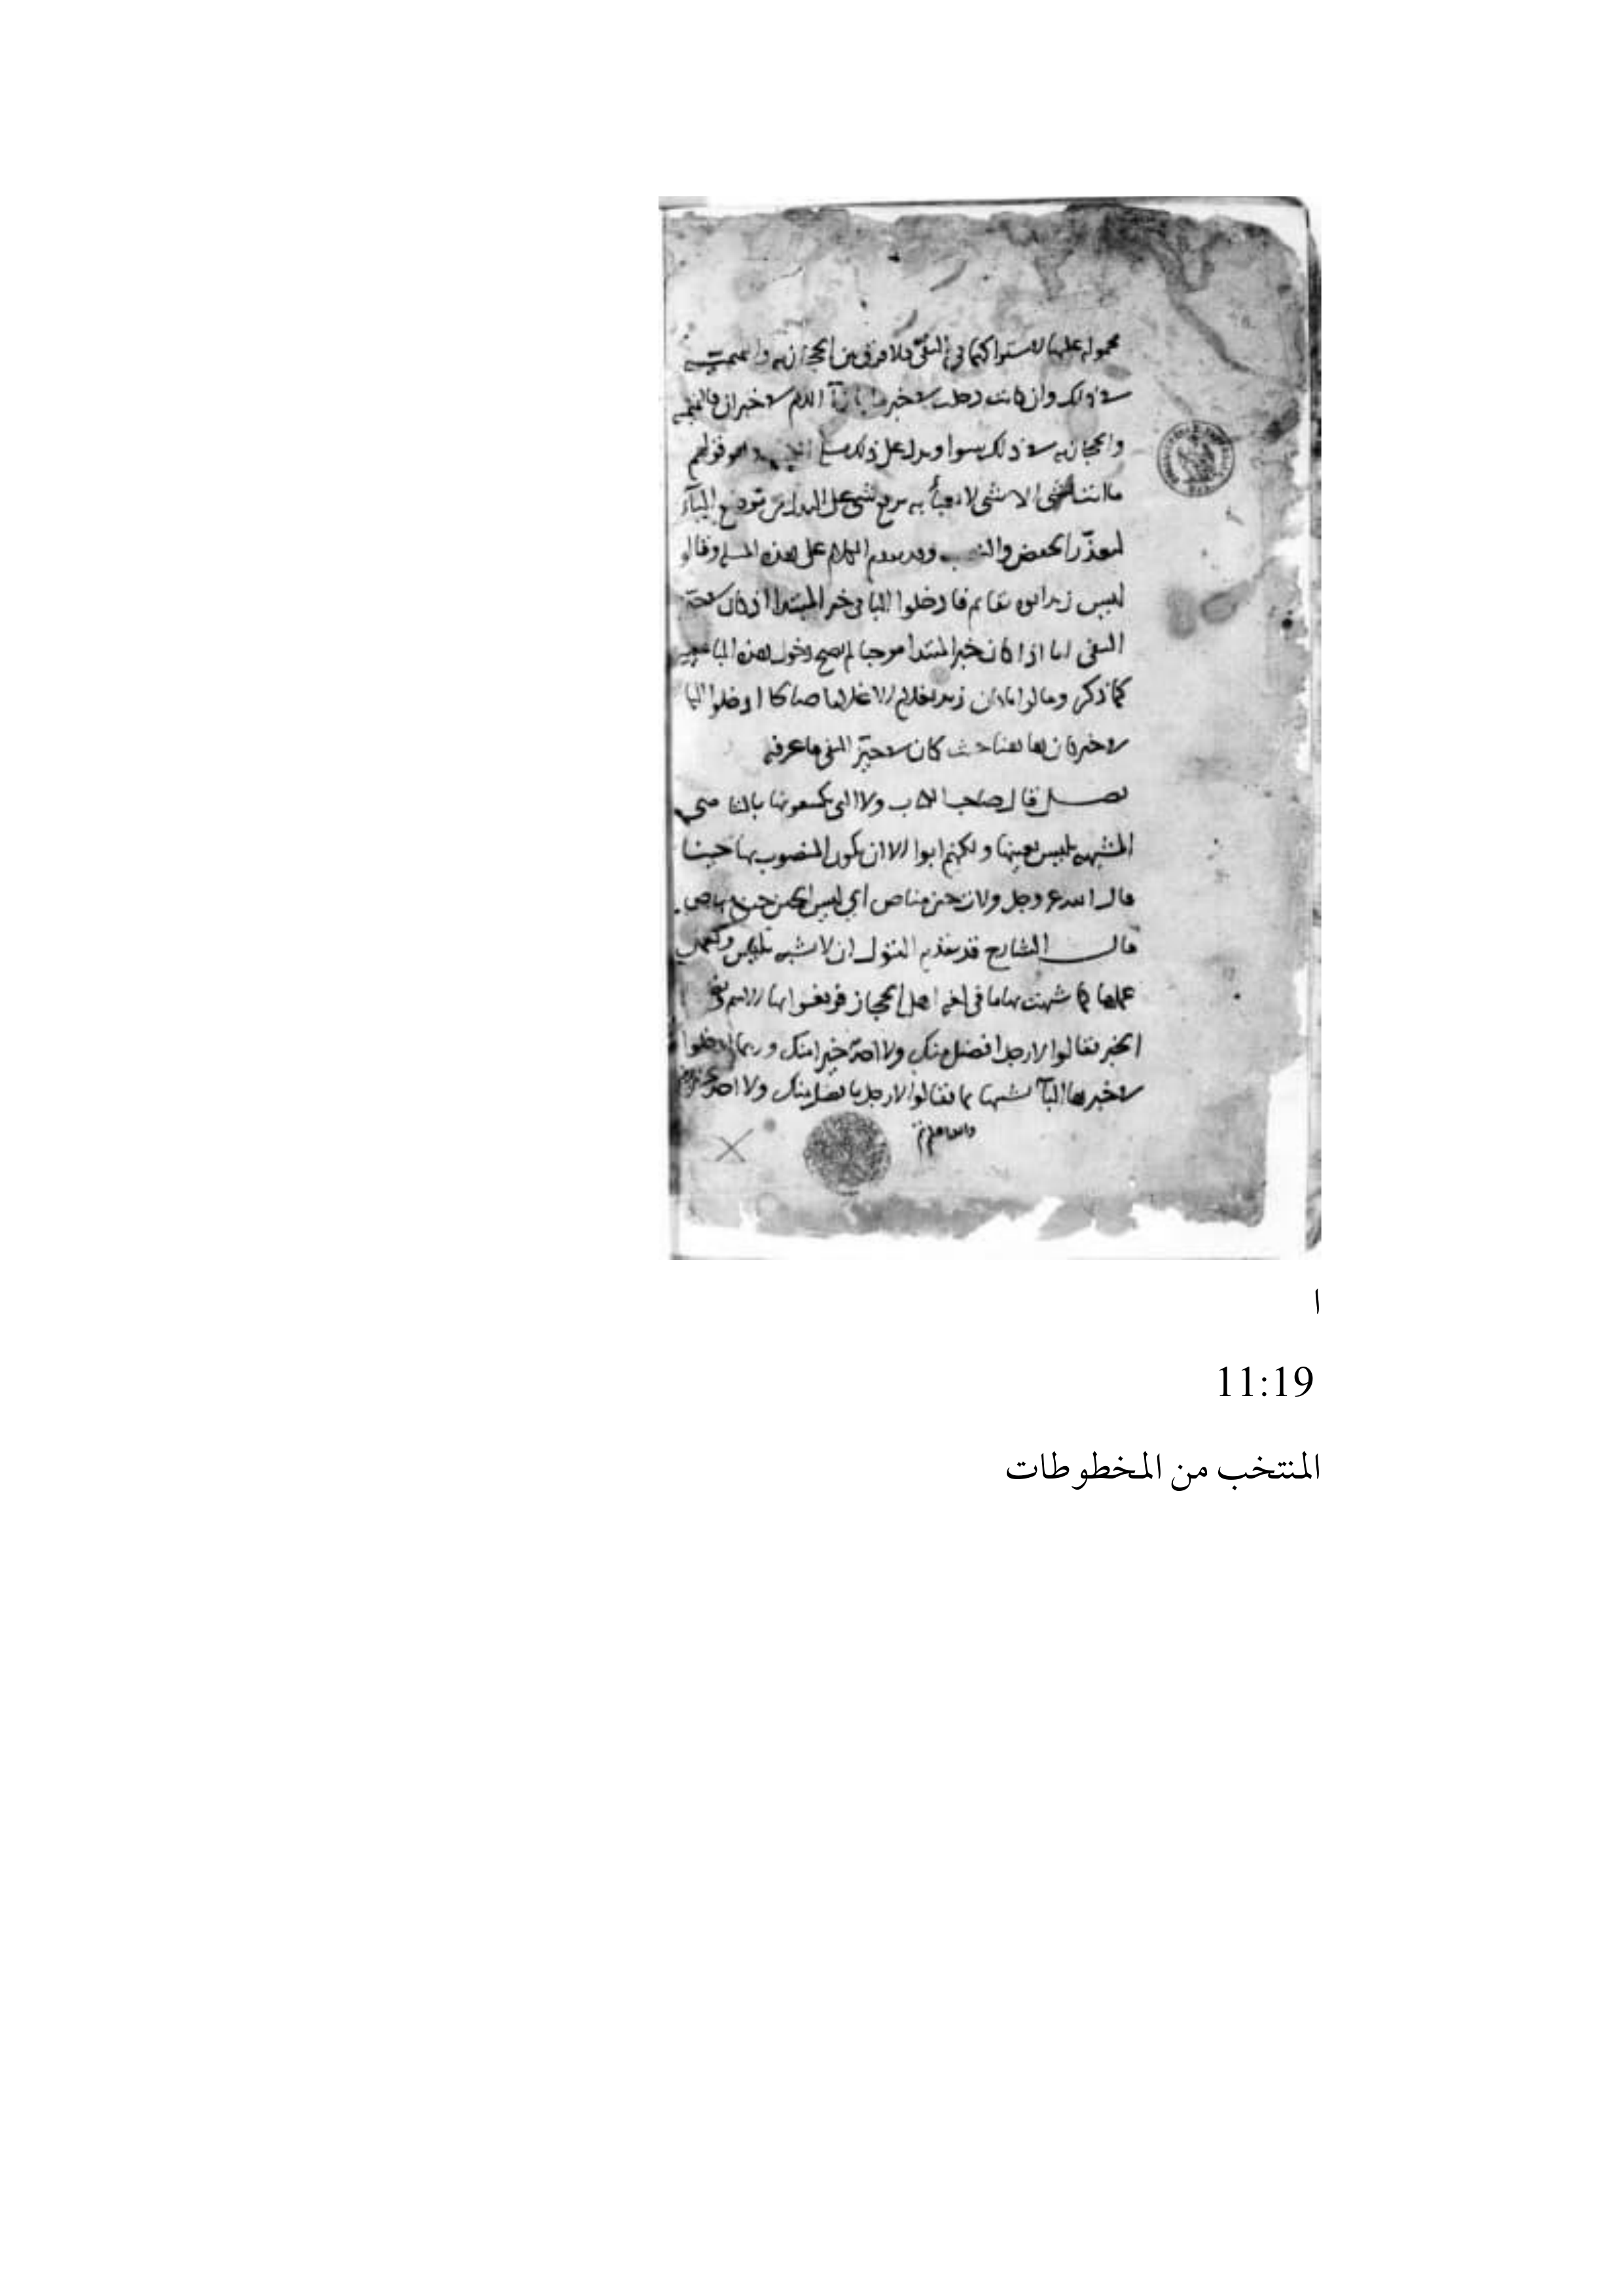 محموله عليها لاستوائهما في النفي فلا فرق بين الحجازيه والتميميه
في ذلك وان كانت دخلت في خبر ما بازاء اللام في خبر ان فالتميميه
والحجازيه في ذلك سوا ويدل على ذلك قولهم
ما انت بشي الا شي لا يعبأ به برفع شي على البدل من موضع الباء
لتعذر الخفض والنصب وقد تقدم الكلام على هذه المسله وقالو
ليس زيد ابوه بقايم فادخلوا الباء في خبر المبتدا اذ كان في حيز
النفي اما اذا كان خبر المبتدا موجبا لم يصح دخول هذه الباء
كما ذكر وقالوا ما كان زيد بغلام الا غلاما صالحا ادخلوا البا
في خبر كان هاهنا حيث كان في حيز النفي فاعرفه
فصل قال صاحب الكتاب ولا التي يكسعونها بالتا هي
المشبهه بليس بعينها ولكنهم ابوا الا ان يكون المنصوب بها حينا
قال الله عز وجل ولات حين مناص اي ليس الحين حين مناص
قال الشارح قد تقدم القول ان لا تشبه بليس وتعمل
عملها كما شبهت بها ما في لغه اهل الحجاز فرفعوا بها الاسم
الخبر فقالوا لا رجل افضل منك ولا احد خيرا منك وربما ادخلوا
في خبرها الباء تشبيها بما فقالوا لا رجل بافضل منك ولا احد
ا
11:19
المنتخب من المخطوطات